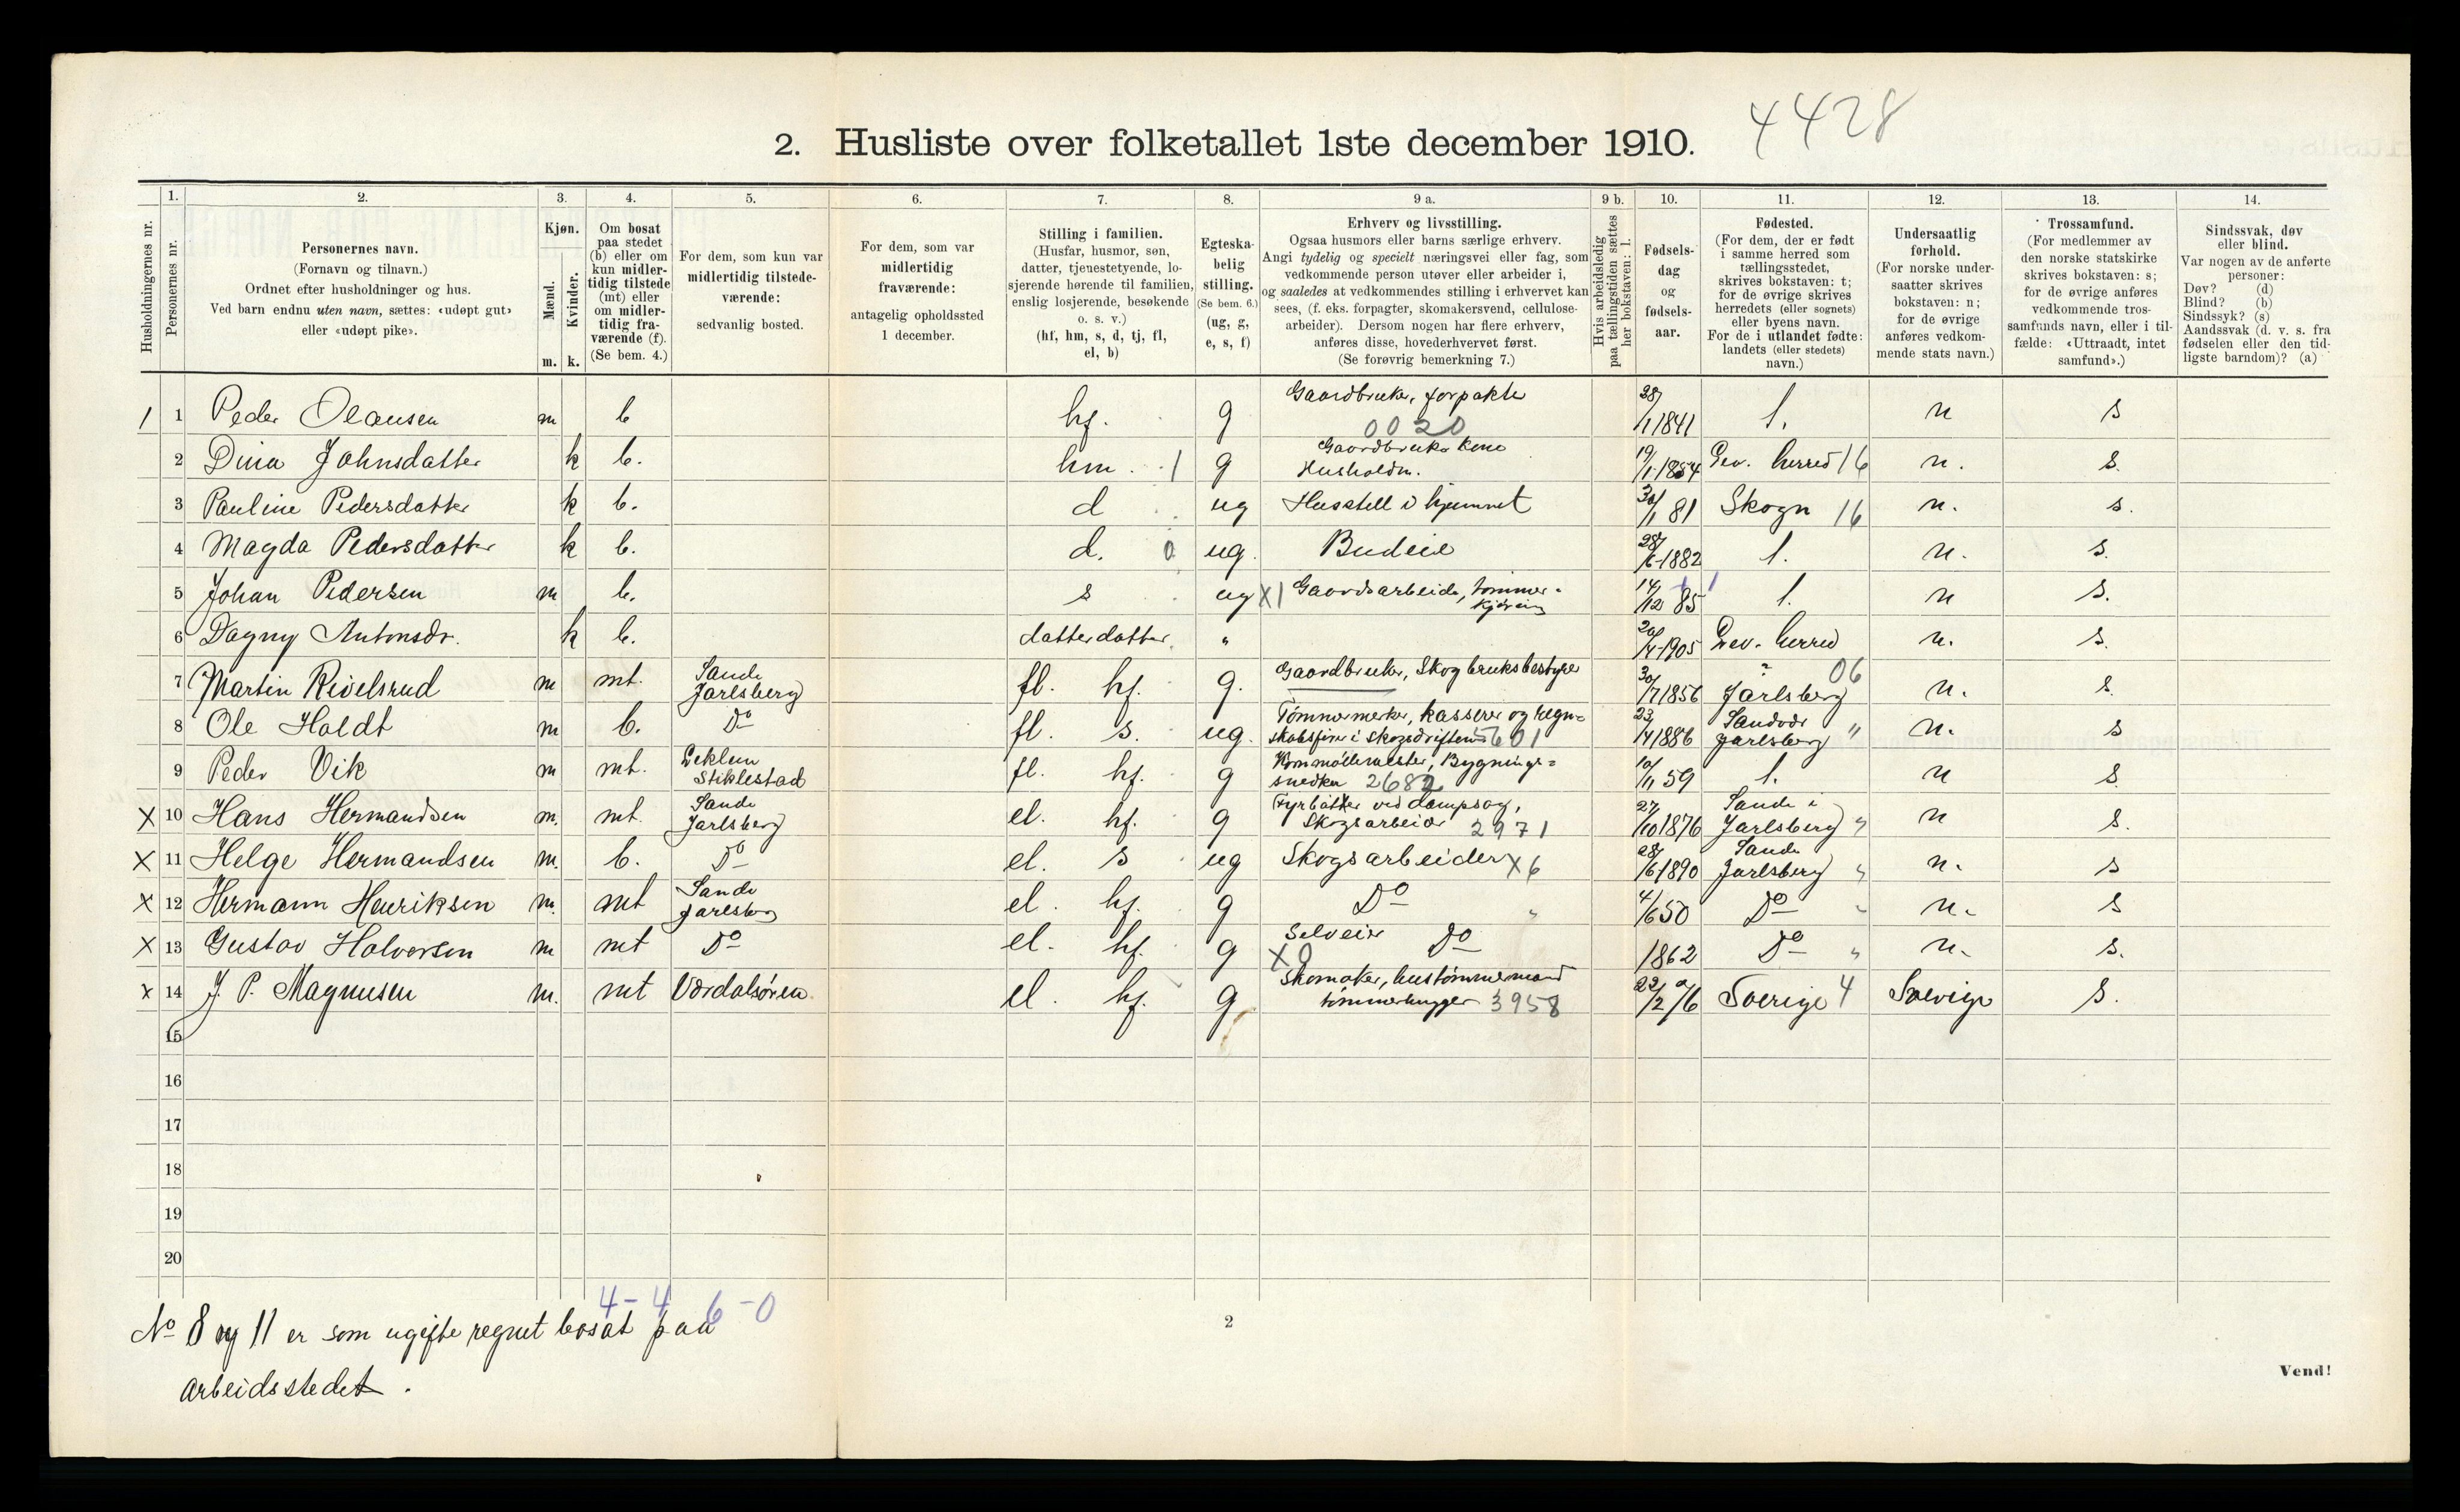 4428
2. Husliste over folketallet 1ste december 1910.
Husholdningernes nr.
1.
Personernes nr.
2.
Personernes navn.
(Fornavn og tilnavn.)
Ordnet efter husholdninger og hus.
Ved barn endnu uten navn, sættes: «udøpt gut»
eller «udøpt pike».
3.
Kjøn.
Mænd.
Kvinder.
m. k.
4.
Om bosat
paa stedet
(b) eller om
kun midler-
tidig tilstede
(mt) eller
om midler-
tidig fra-
værende (f).
(Se bem. 4.)
5.
For dem, som kun var
midlertidig tilstede-
værende:
sedvanlig bosted.
6.
For dem, som var
midlertidig
fraværende:
antagelig opholdssted
1 december.
7.
Stilling i familien.
(Husfar, husmor, søn,
datter, tjenestetyende, lo-
sjerende hørende til familien,
enslig losjerende, besøkende
o. s. v.)
(hf, hm, s, d, tj, fl,
el, b)
8.
Egteska-
belig
stilling.
(Se bem. 6.)
(ug, g,
e, s, f)
9 a.
Erhverv og livsstilling.
Ogsaa husmors eller barns særlige erhverv.
Angi tydelig og specielt næringsvei eller fag, som
vedkommende person utøver eller arbeider i,
og saaledes at vedkommendes stilling i erhvervet kan
sees, (f. eks. forpagter, skomakersvend, cellulose-
arbeider). Dersom nogen har flere erhverv,
anføres disse, hovederhvervet først.
(Se forøvrig bemerkning 7.)
9 b.
Hvis arbeidsledig
paa tællingstiden sættes
her bokstaven: l.
10.
Fødsels-
dag
og
fødsels-
aar.
11.
Fødested.
(For dem, der er født
i samme herred som
tællingsstedet,
skrives bokstaven: t;
for de øvrige skrives
herredets (eller sognets)
eller byens navn.
For de i utlandet fødte:
landets (eller stedets)
navn.)
12.
Undersaatlig
forhold.
(For norske under-
saatter skrives
bokstaven: n;
for de øvrige
anføres vedkom-
mende stats navn.)
13.
Trossamfund.
(For medlemmer av
den norske statskirke
skrives bokstaven: s;
for de øvrige anføres
vedkommende tros-
samfunds navn, eller i til-
fælde: «Uttraadt, intet
samfund».)
14.
Sindssvak, døv
eller blind.
Var nogen av de anførte
personer:
Døv? (d)
Blind? (b)
Sindssyk? (s)
Aandssvak (d. v. s. fra
fødselen eller den tid-
ligste barndom)? (a)
1 1 Peder Olausen m b hf. g Gaardbruker, forpakter 0020 28/1 1841 t. n s
2 Dina Johnsdatter k b. hm. 1 g Gaardbruker kone Husholdn. 19/1 1854 herred 16 n. s.
3 Pauline Pedersdatter k b. d ug Husstell i hjemmet 30/1 81 Skogn 16 n. s.
4 Magda Pedersdatter k b. d. 0 ug. Budeie 28/6 1882 t. n. s.
5 Johan Pedersen m b. s ug X1 Gaardsarbeide, tømmer- kjøring 14/12 85 t. n s.
6 Dagny Antonsdr. k b. datterdatter " 20/4 1905 herred n. s.
7 Martin Rivelsrud m mt. Sande Jarlsberg fl. hf. g. Gaardbruker, Skogbruksbestyrer 30/7 1856 Jarlsberg 06 n. s.
8 Ole Holdt m b. Do fl. s. ug. Tømmermerker, kasserer og regn- skabsfører i Skogsdriften 5601 23/4 1886 Jarlsberg " n. s
9 Peder Vik m mt. Stiklestad fl. hf. g Bygnings- snedker 2682 10/11 59 t. n s.
X 10 Hans Hermandsen m. mt. Sande Jarlsberg el. hf. g Fyrbøter ved dampsag, Skogsarbeider 2971 27/10 1876 Sande i Jarlsberg " n s.
X 11 Helge Hermandsen m. b. Do el. s ug Skogsarbeider X6 28/6 1890 Sande Jarlsberg " n. s
X 12 Hermann Henriksen m. mt Sande Jarlsberg el. hf. g Do " 4/6 50 Do " n. s
X 13 Gustav Halvorsen m mt Do el. hf. g Selveier Do X0 1862 Do " n. s.
x 14 J. P. Magnusen m. mt Værdalsøren el. hf. g Skomaker, hustømmermand tømmerhugger 3958 22/2 76 Sverige 4 Sverige s.
15
16
17
18
19
20
4-4 6-0
No 8 og 11 er som ugifte regnet bosat paa
arbeidsstedet.
2
Vend!